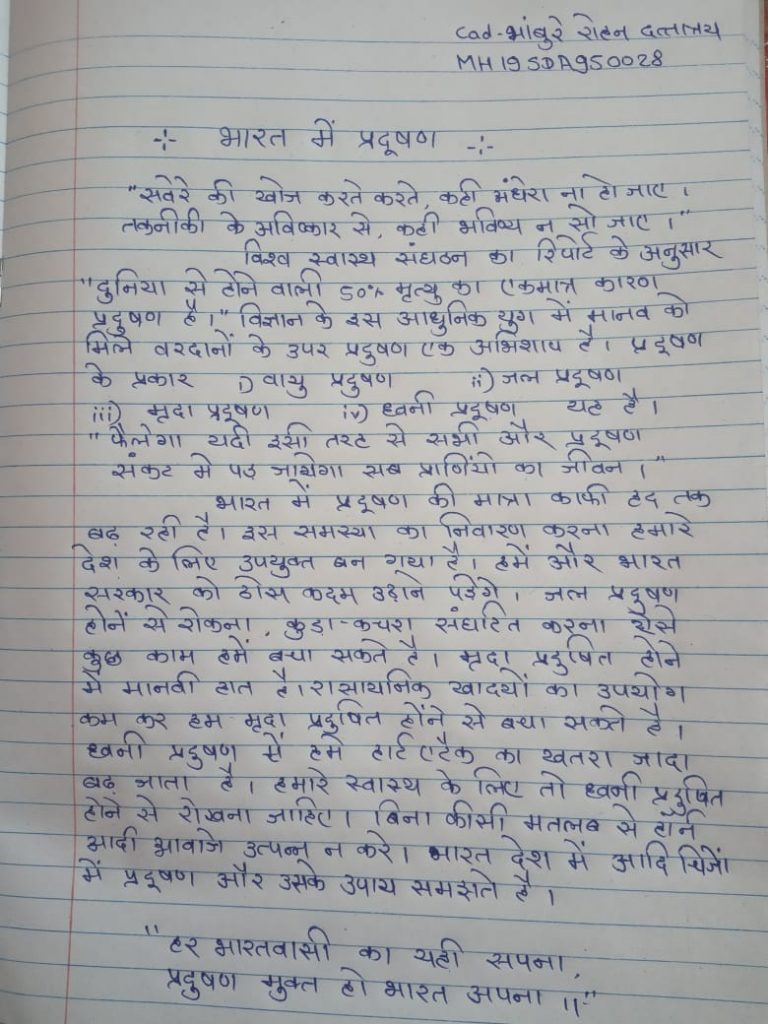 Cad-भांबुरे रोहन दत्तात्रय
MH19SDA950028
-:- भारत में प्रदूषण -:-
"सवेरे की खोज करते करते, कही अंधेरा ना हो जाए ।
तकनीकी के अविष्कार से, कही भविष्य न सो जाए ।"
विश्व स्वास्थ संघठन का रिपोर्ट के अनुसार
"दुनिया से होने वाली 50% मृत्यु का एकमात्र कारण
प्रदुषण है।" विज्ञान के इस आधुनिक युग में मानव को
मिले वरदानों के उपर प्रदुषण एक अभिशाप है। प्रदूषण
के प्रकार i) वायु प्रदुषण ii) जल प्रदूषण
iii) मृदा प्रदूषण iv) ध्वनी प्रदूषण यह है।
"फैलेगा यदी इसी तरह से सभी और प्रदूषण
संकट मे पड जायेगा सब प्राणियो का जीवन ।"
भारत में प्रदूषण की मात्रा काफी हद तक
बढ़ रही है। इस समस्या का निवारण करना हमारे
देश के लिए उपयुक्त बन गया है। हमें और भारत
सरकार को ठोस कदम उठाने पडेगे । जल प्रदुषण
होनें से रोकना, कुडा-कचरा संघटित करना ऐसे
कुछ काम हमें बचा सकते है। मृदा प्रदुषित होने
मे मानवी हात है। रासायनिक खादयों का उपयोग
कम कर हम मृदा प्रदुषित होंने से बचा सकते है।
ध्वनी प्रदुषण में हमे हार्टएटैक का खतरा जादा
बढ़ जाता है। हमारे स्वास्थ के लिए तो ध्वनी प्रदुषित
होने से रोखना जाहिए। बिना कीसी मतलब से हॉर्न
आदी आवाजे उत्पन्न न करे। भारत देश में आदि चिजों
में प्रदूषण और उसके उपाय समझते है।
"हर भारतवासी का यही सपना,
प्रदुषण मुक्त हो भारत अपना ॥"